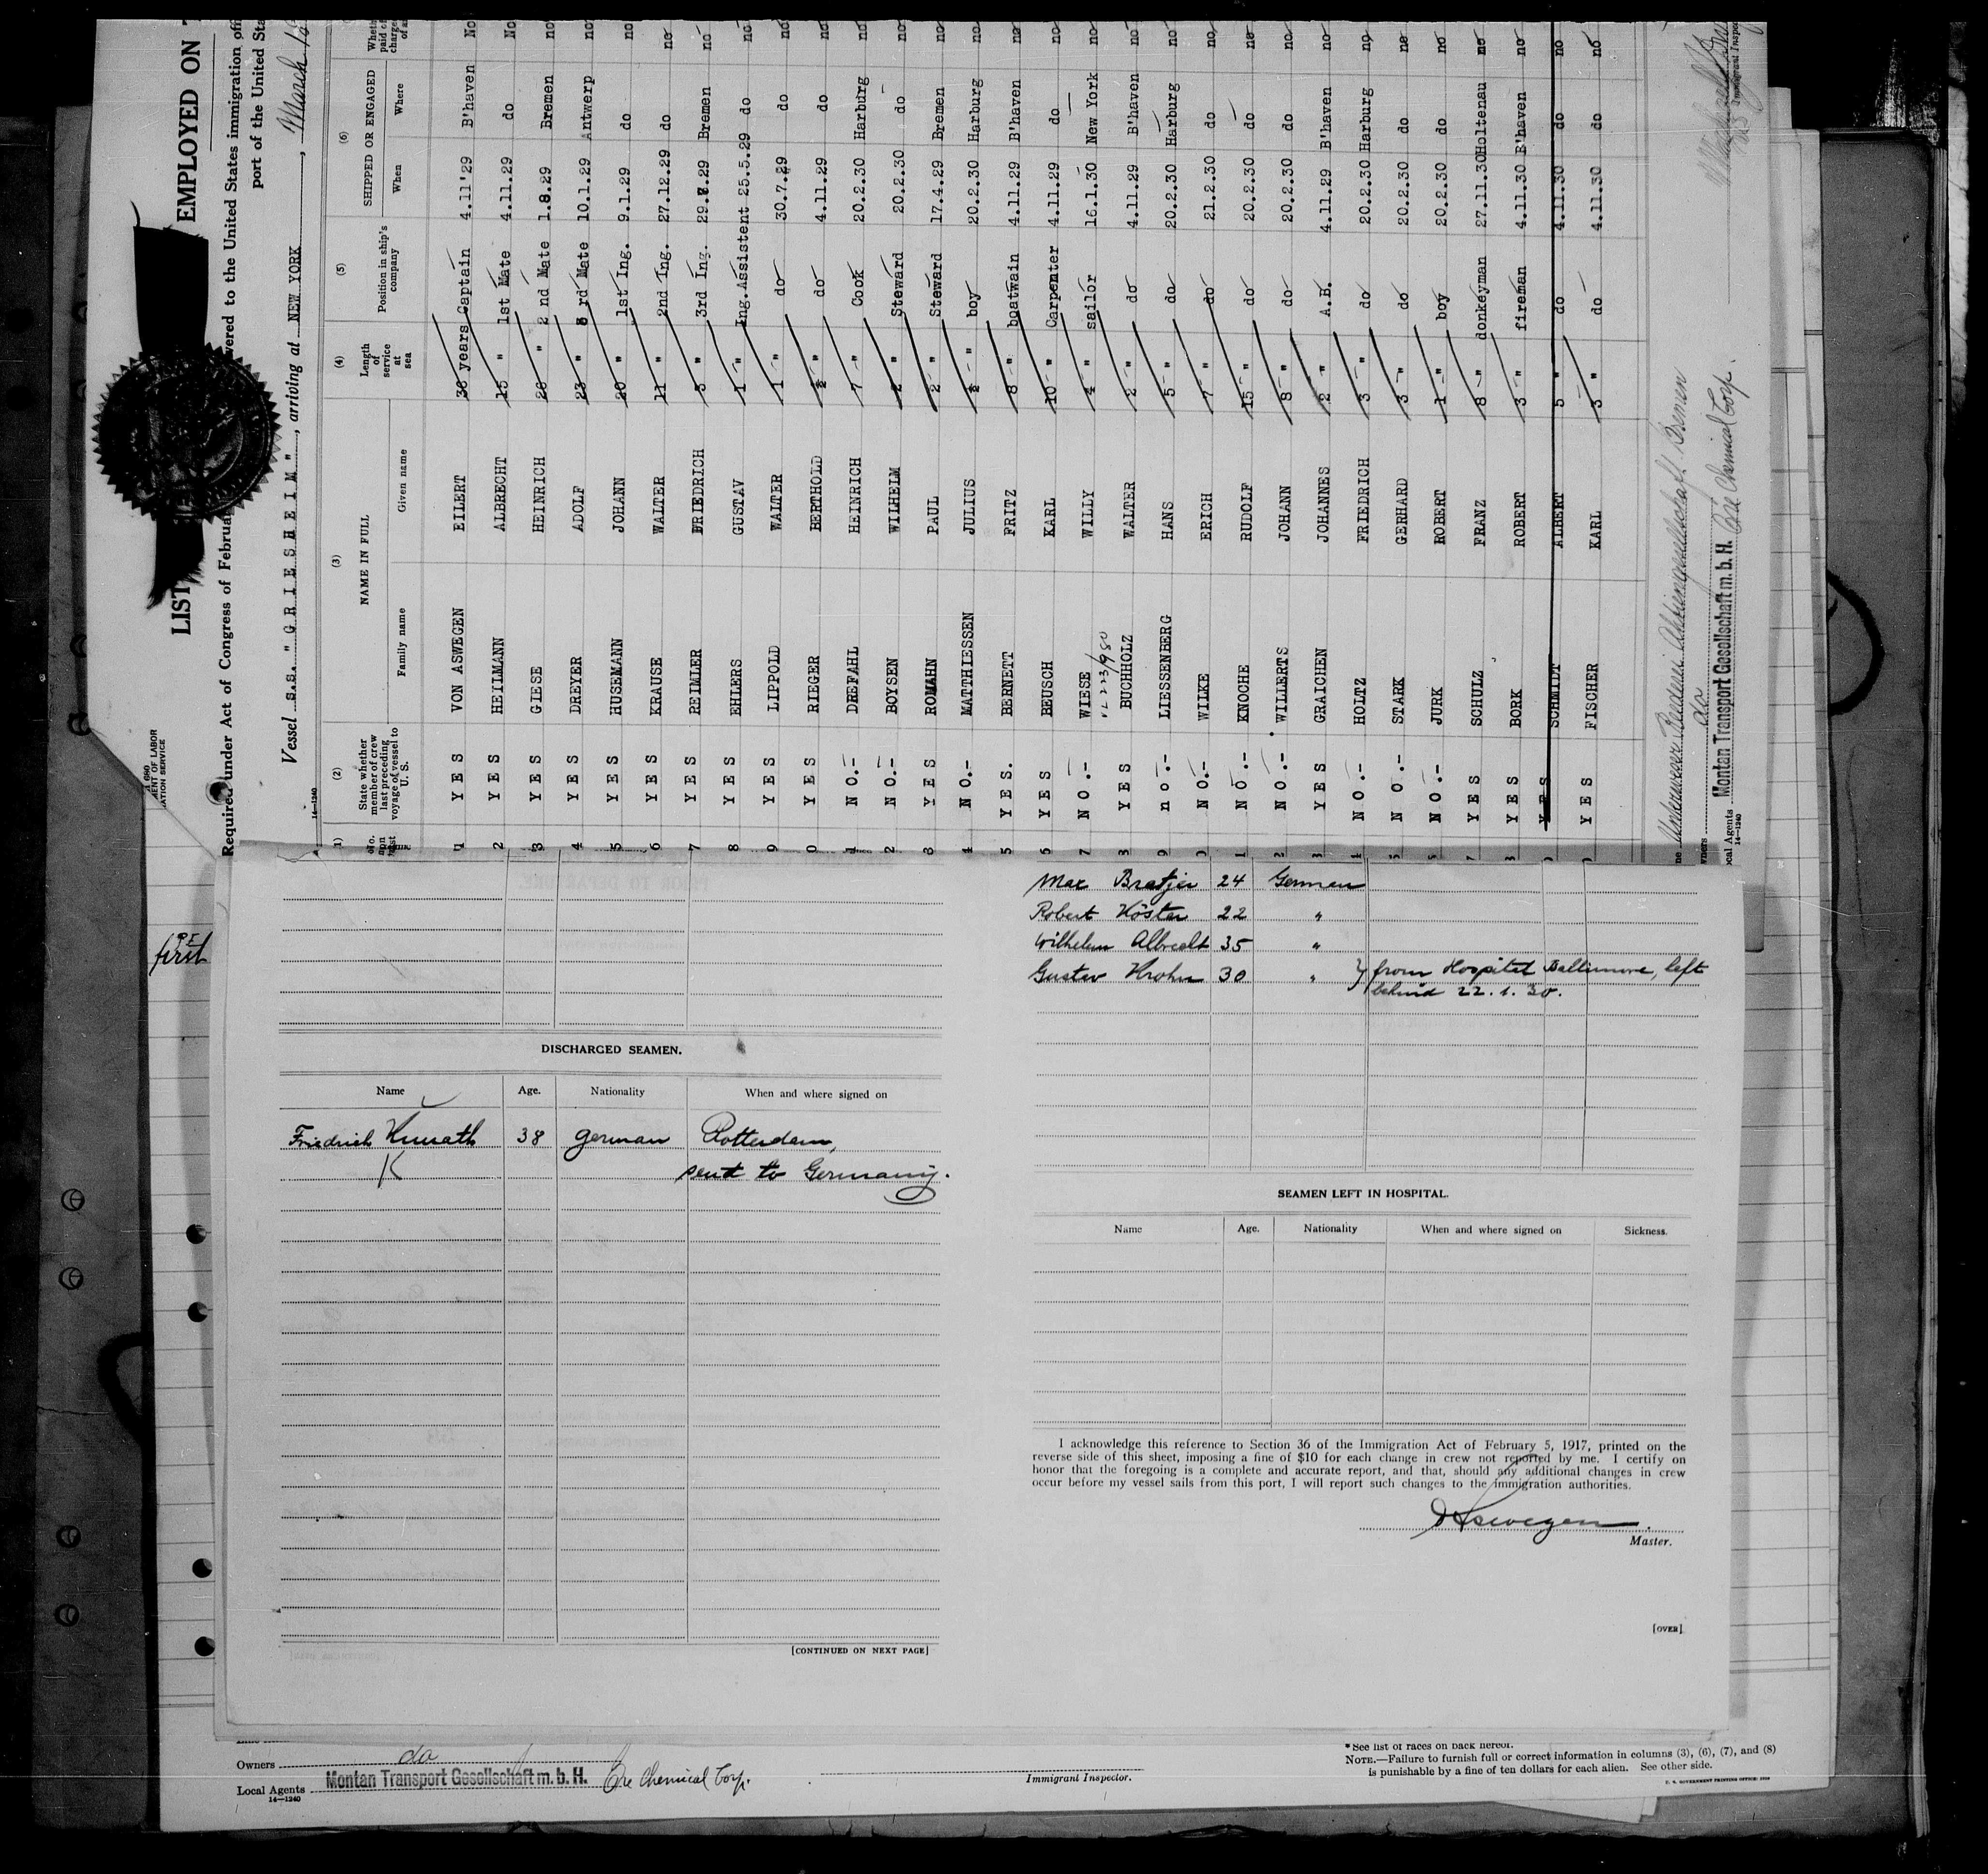 LIST
EMPLOYED ON
Required under Act of Congress of Februar
vered to the United States immigration offi
port of the United Sta
Vessel s.s. "GRIESHEIM", arriving at NEW YORK, March
14—1240
(2) (3) (4) (5) (6)
State whether member of crew last preceding voyage of vessel to U. S.
NAME IN FULL
Family name Given name
Length of service at sea
Position in ship's company
SHIPPED OR ENGAGED
When Where
1 YES VON ASWEGEN EILERT 38 years Captain 4.11'29 B'haven No
2 YES HEILMANN ALBRECHT 15 " 1st Mate 4.11.29 do No
3 YES GIESE HEINRICH 26 " 2 nd Mate 1.8.29 Bremen no
4 YES DREYER ADOLF 23 " 3 rd Mate 10.1.29 Antwerp no
5 YES HUSEMANN JOHANN 20 " 1st Ing. 9.1.29 do no
6 YES KRAUSE WALTER 11 " 2nd Ing. 27.12.29 do no
7 YES REIMLER FRIEDRICH 3 " 3rd Ing. 29.7.29 Bremen no
8 YES EHLERS GUSTAV 1 " Ing.Assistent 25.5.29 do no
9 YES LIPPOLD WALTER 1 " do 30.7.29 do no
0 YES RIEGER BERTHOLD ½ " do 4.11.29 do no
1 NO.- DREFAHL HEINRICH 7 " Cook 20.2.30 Harburg no
2 NO.- BOYSEN WILHELM 2 " Steward 20.2.30 do no
3 YES ROMAHN PAUL 2 " Steward 17.4.29 Bremen no
4 NO.- MATTHIESSEN JULIUS ½ " boy 20.2.30 Harburg no
5 YES. BERNETT FRITZ 8 " boatwain 4.11.29 B'haven no
YES BEUSCH KARL 10 " Carpenter 4.11.29 do no
7 NO.- WIESE WILLY 4 " sailor 16.1.30 New York no
YES BUCHHOLZ WALTER 2 " do 4.11.29 B'haven no
9 no.- LIESSENBERG HANS 5 " do 20.2.30 Harburg no
NO.- WILKE ERICH 7 " do 21.2.30 do no
1 NO.- KNOCHE RUDOLF 15 " do 20.2.30 do no
2 NO.- WILLERTS JOHANN 8 " do 20.2.30 do no
3 YES GRAICHEN JOHANNES 2 " A.B. 4.11.29 B'haven no
4 NO.- HOLTZ FRIEDRICH 3 " do 20.2.30 Harburg no
NO.- STARK GERHARD 3 " do 20.2.30 do no
NO.- JURK ROBERT 1 " boy 20.2.30 do no
7 YES SCHULZ FRANZ 8 " donkeyman 27.11.30 Holtenau no
YES BORK ROBERT 3 " fireman 4.11.30 B'haven no
YES SCHMIDT ALBERT 5 " do 4.11.30 do no
YES FISCHER KARL 3 " do 4.11.30 do no
Unterweser Reederei Aktiengesellschaft Bremen
do
Local Agents Montan Transport Gesellschaft m. b. H. Ore Chemical Corp.
14—1240
Immigrant Inspec
first
Max Bratjer 24 German
Robert Köster 22 "
Wilhelm Albrecht 35 "
Gustav Krohn 30 " } from Hospital Baltimore, left
behind 22.1.30.
DISCHARGED SEAMEN.
Name Age. Nationality When and where signed on
Friedrich Kunath 38 german Rotterdam,
K sent to Germany.
[CONTINUED ON NEXT PAGE]
SEAMEN LEFT IN HOSPITAL.
Name Age. Nationality When and where signed on Sickness.
I acknowledge this reference to Section 36 of the Immigration Act of February 5, 1917, printed on the
reverse side of this sheet, imposing a fine of $10 for each change in crew not reported by me. I certify on
honor that the foregoing is a complete and accurate report, and that, should any additional changes in crew
occur before my vessel sails from this port, I will report such changes to the immigration authorities.
Aswegen
Master.
[OVER]
Owners do
Local Agents Montan Transport Gesellschaft m. b. H. Ore Chemical Corp.
14—1240
Immigrant Inspector.
*See list of races on back hereof.
NOTE.—Failure to furnish full or correct information in columns (3), (6), (7), and (8)
is punishable by a fine of ten dollars for each alien. See other side.